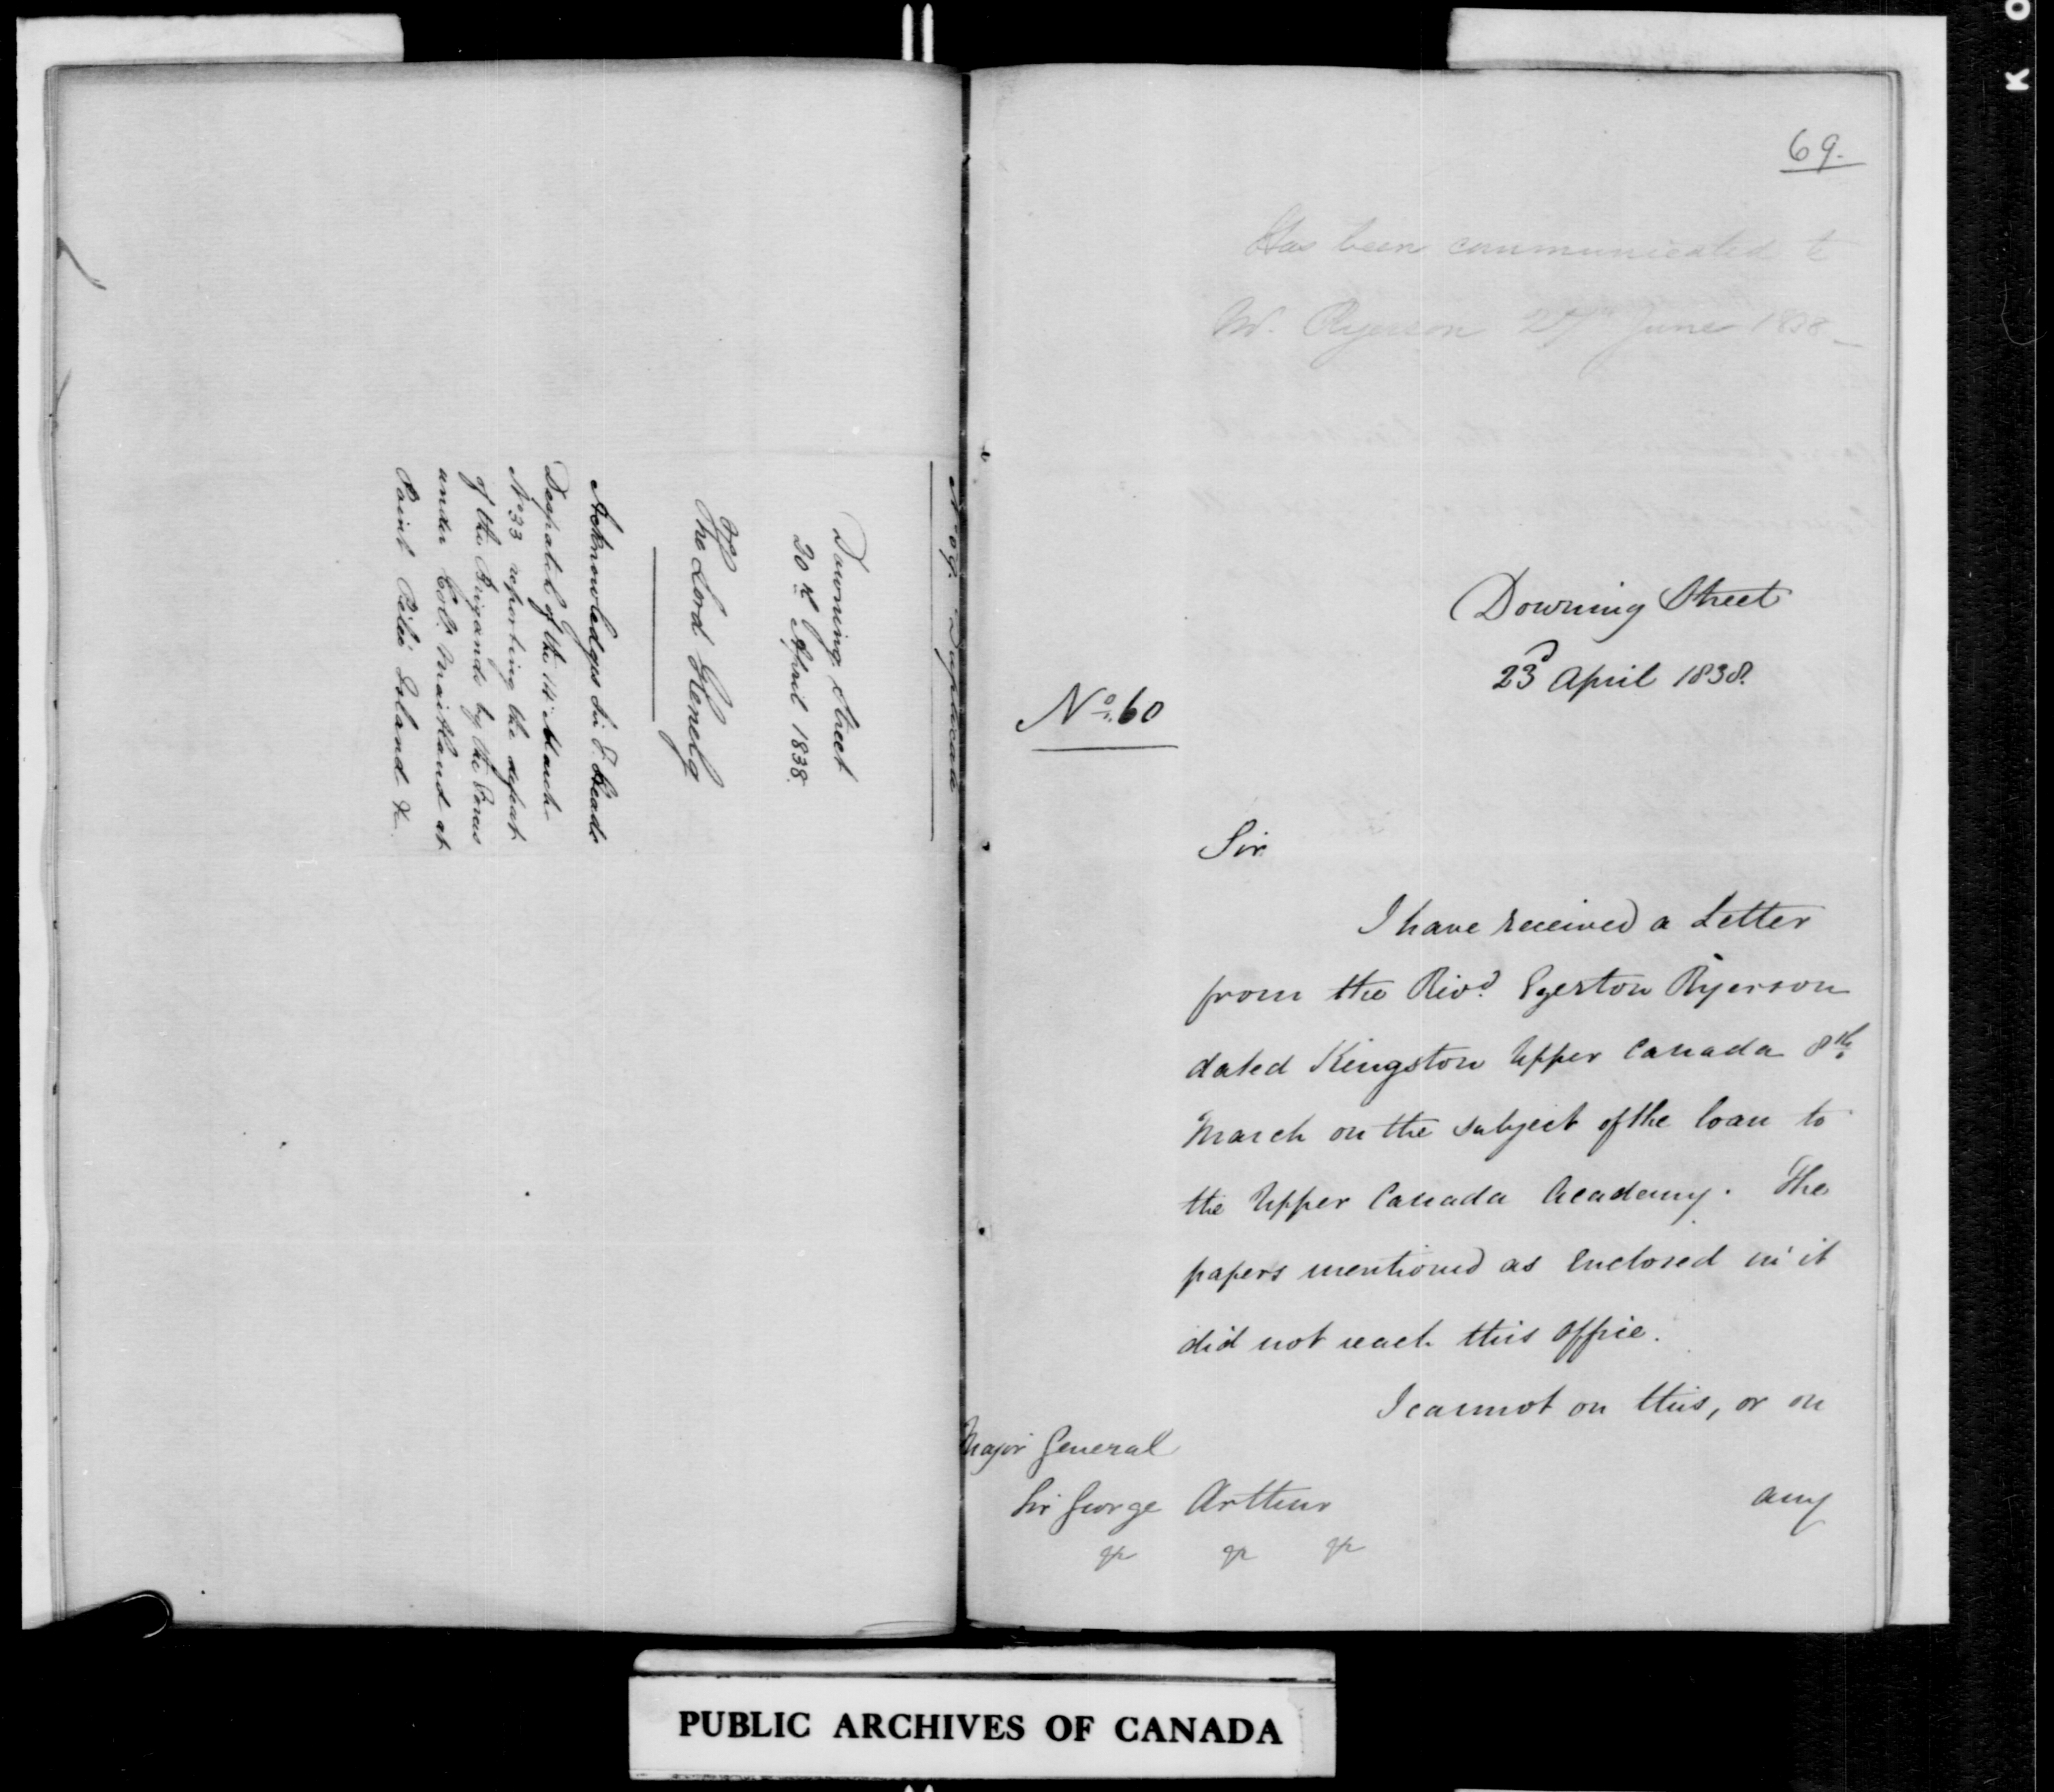 Duplicate
Downing Street
20th April 1838.
The Lord Glenelg
Acknowledges Sir F. Heads
Despatch of the 14th March
No 33 reporting the defeat
of the Brigands by the Forces
under Col. Maitland at
Point Pelée Island &c
69.
Has been communicated to
Mr. Ryerson 27th June 1838_
Downing Street
23d April 1838.
No. 60
Sir
I have received a Letter
from the Revd. Egerton Ryerson
dated Kingston Upper Canada 8th
March on the subject of the loan to
the Upper Canada Academy. The
papers mentioned as enclosed in it
did not reach this Office.
I cannot on this, or on
Major General
Sir George Arthur
any
PUBLIC ARCHIVES OF CANADA